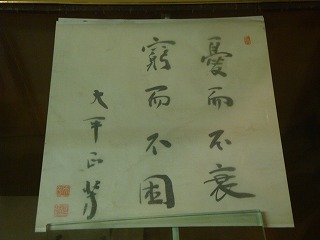 憂而不衰
窮而不困
大平正芳